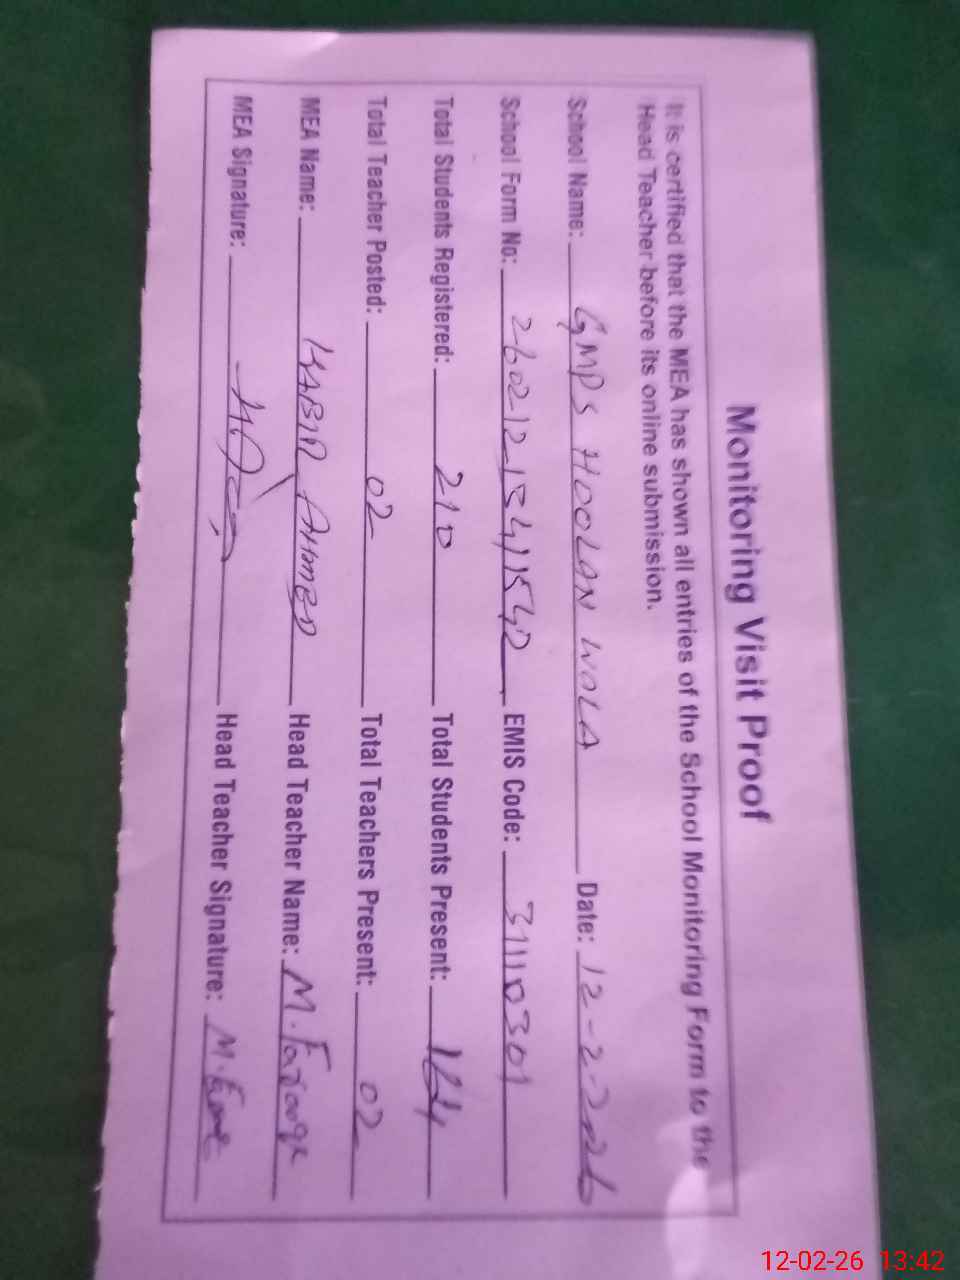 Monitoring Visit Proof
It is certified that the MEA has shown all entries of the School Monitoring Form to the
Head Teacher before its online submission.
School Name: GMPS HOOLAN WOLA Date: 12-2-2026
School Form No: EMIS Code: 31110301
Total Students Registered: 210 Total Students Present: 164
Total Teacher Posted: 02 Total Teachers Present: 02
MEA Name: KABIR AHMED Head Teacher Name: M. Farooq
MEA Signature: Head Teacher Signature:
12-02-26 13:42